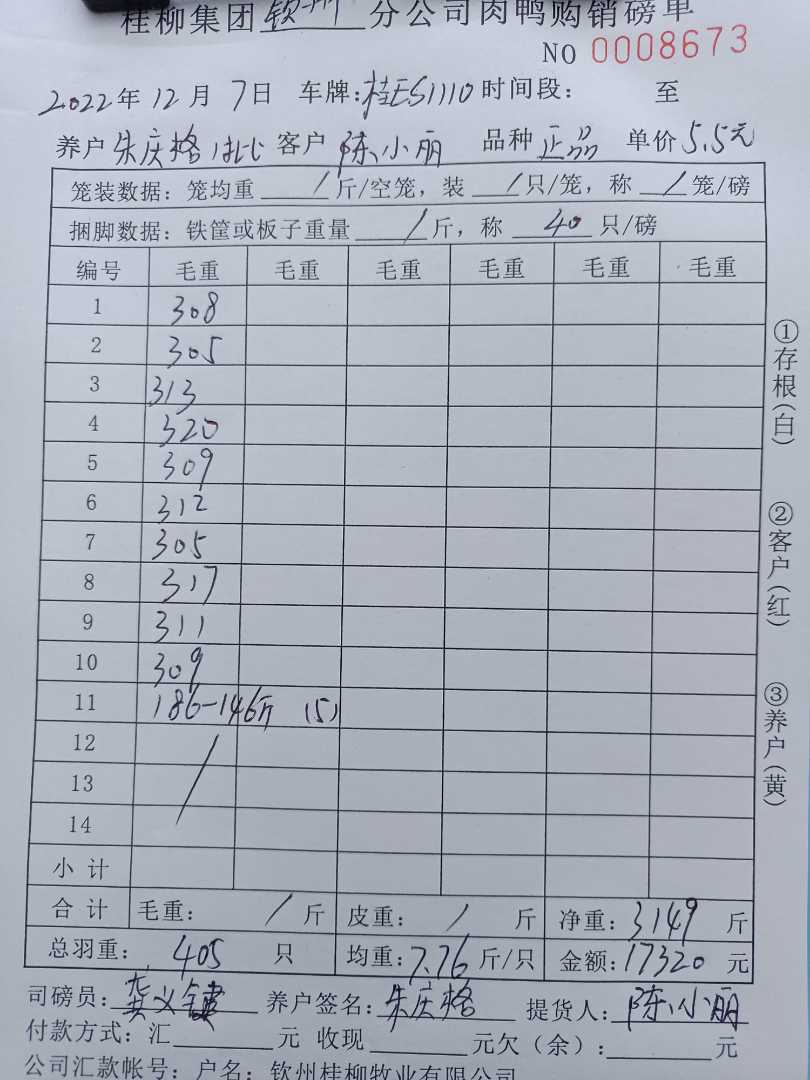 桂柳集团钦州分公司肉鸭购销磅单
NO 0008673
2022年12月7日 车牌:桂ES1110 时间段: 至
养户 朱庆格 客户 陈小丽 品种 正品 单价 5.5元
笼装数据: 笼均重 / 斤/空笼, 装 / 只/笼, 称 / 笼/磅
捆脚数据: 铁筐或板子重量 / 斤, 称 40 只/磅
编号 毛重 毛重 毛重 毛重 毛重 毛重
1 308
2 305
3 313
4 320
5 309
6 312
7 305
8 317
9 311
10 309
11 186-146斤 (5)
12 /
13
14
小计
合计 毛重: / 斤 皮重: / 斤 净重: 3149 斤
总羽重: 405 只 均重: 7.76 斤/只 金额: 17320 元
司磅员: 龚义 养户签名: 朱庆格 提货人: 陈小丽
付款方式: 汇 元 收现 元欠(余): 元
公司汇款帐号: 户名: 钦州桂柳牧业有限公司
①存根(白)
②客户(红)
③养户(黄)